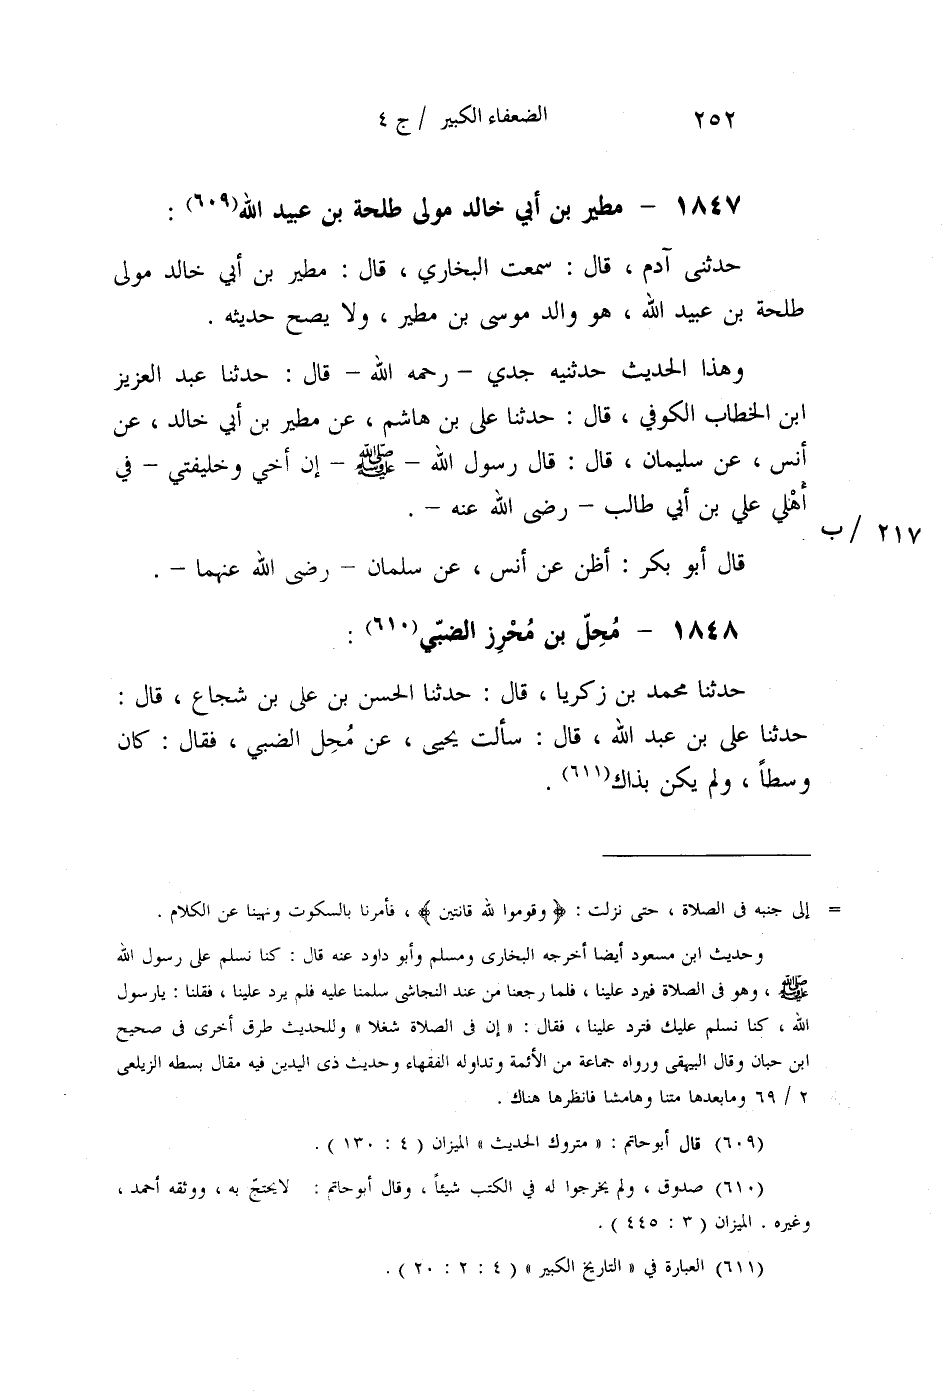 ٢٥٢ الضعفاء الكبير / ج ٤
١٨٤٧ – مطير بن أبي خالد مولى طلحة بن عبيد الله(٦٠٩) :
حدثنى آدم ، قال : سمعت البخاري ، قال : مطير بن أبي خالد مولى
طلحة بن عبيد الله ، هو والد موسى بن مطير ، ولا يصح حديثه .
وهذا الحديث حدثنيه جدي – رحمه الله – قال : حدثنا عبد العزيز
ابن الخطاب الكوفي ، قال : حدثنا على بن هاشم ، عن مطير بن أبي خالد ، عن
أنس ، عن سليمان ، قال : قال رسول الله – ﷺ – إن أخي وخليفتي – في
أَهْلي علي بن أبي طالب – رضى الله عنه – .
٢١٧ / ب
قال أبو بكر : أظن عن أنس ، عن سلمان – رضى الله عنهما – .
١٨٤٨ – مُحِلّ بن مُحْرِز الضبّي(٦١٠) :
حدثنا محمد بن زكريا ، قال : حدثنا الحسن بن على بن شجاع ، قال :
حدثنا على بن عبد الله ، قال : سألت يحيى ، عن مُحِل الضبي ، فقال : كان
وسطاً ، ولم يكن بذاك(٦١١) .
= إلى جنبه فى الصلاة ، حتى نزلت : ﴿ وقوموا لله قانتين ﴾ ، فأمرنا بالسكوت ونهينا عن الكلام .
وحديث ابن مسعود أيضا أخرجه البخارى ومسلم وأبو داود عنه قال : كنا نسلم على رسول الله
ﷺ ، وهو فى الصلاة فيرد علينا ، فلما رجعنا من عند النجاشى سلمنا عليه فلم يرد علينا ، فقلنا : يارسول
الله ، كنا نسلم عليك فترد علينا ، فقال : « إن فى الصلاة شغلا » وللحديث طرق أخرى فى صحيح
ابن حبان وقال البيهقى ورواه جماعة من الأئمة وتداوله الفقهاء وحديث ذى اليدين فيه مقال بسطه الزيلعى
٢ / ٦٩ ومابعدها متنا وهامشا فانظرها هناك .
(٦٠٩) قال أبوحاتم : « متروك الحديث » الميزان ( ٤ : ١٣٠ ) .
(٦١٠) صدوق ، ولم يخرجوا له في الكتب شيئاً ، وقال أبوحاتم : لايحتجّ به ، ووثقه أحمد ،
وغيره . الميزان ( ٣ : ٤٤٥ ) .
(٦١١) العبارة في « التاريخ الكبير » ( ٤ : ٢ : ٢٠ ) .